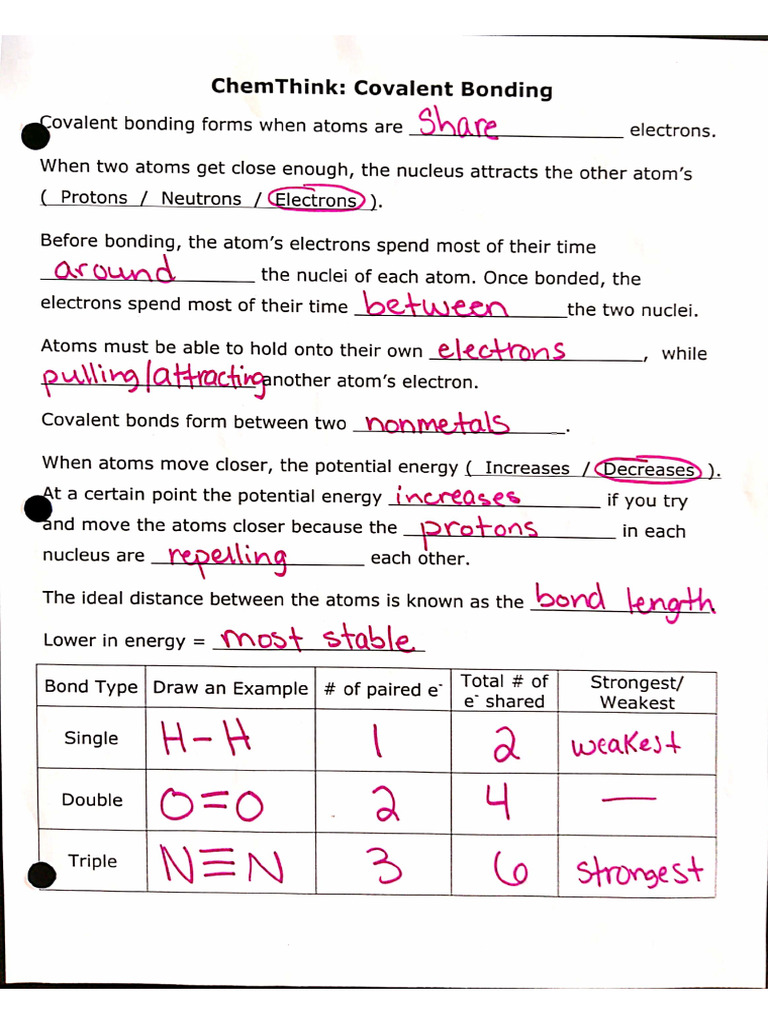 ChemThink: Covalent Bonding
Covalent bonding forms when atoms are Share electrons.
When two atoms get close enough, the nucleus attracts the other atom's
( Protons / Neutrons / Electrons ).
Before bonding, the atom's electrons spend most of their time
around the nuclei of each atom. Once bonded, the
electrons spend most of their time between the two nuclei.
Atoms must be able to hold onto their own electrons, while
pulling/attracting another atom's electron.
Covalent bonds form between two nonmetals.
When atoms move closer, the potential energy ( Increases / Decreases ).
At a certain point the potential energy increases if you try
and move the atoms closer because the protons in each
nucleus are repelling each other.
The ideal distance between the atoms is known as the bond length
Lower in energy = most stable
Bond Type Draw an Example # of paired e⁻ Total # of e⁻ shared Strongest/ Weakest
Single H–H 1 2 weakest
Double O=O 2 4 —
Triple N≡N 3 6 strongest